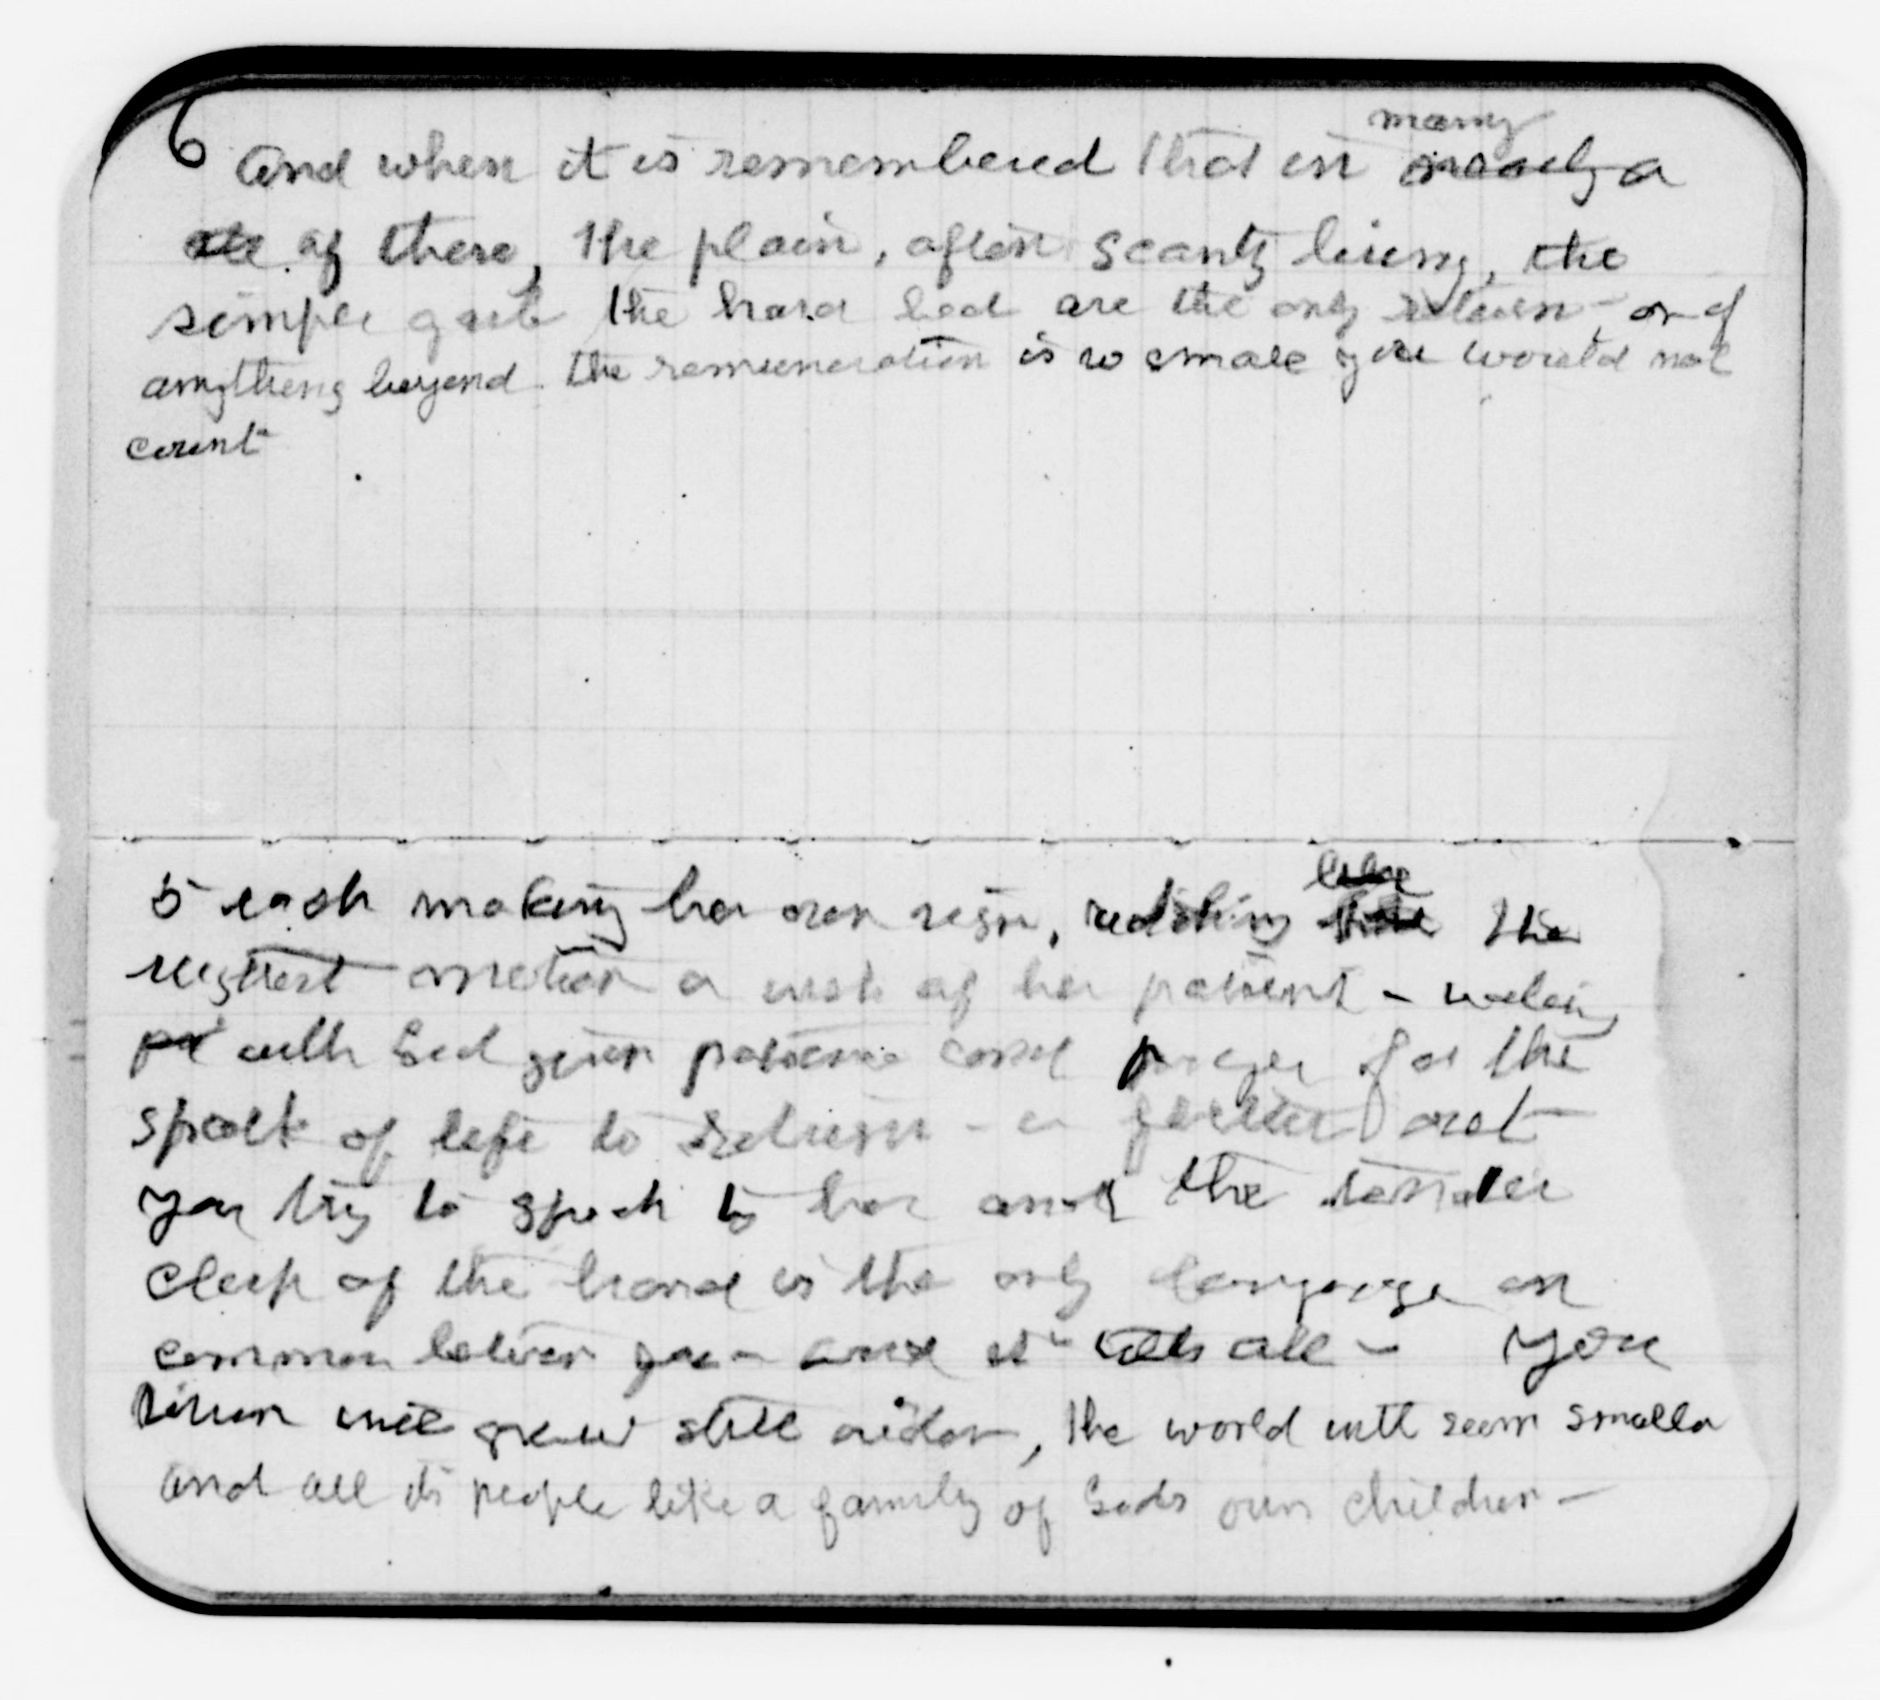 many
6 And when it is remembered that in nearly a
all of these, the plain, often scanty living, the
simple garb the hard bed are the only return - or if
anything beyond the remuneration is so small you would not
count
5 each making her own sign, watching the
slightest motion or wish of her patient - waiting
with God given patience and prayer for the
spark of life to return - a further on
you try to speak to her and the tender
clasp of the hand is the only language in
common between you - and it tells all - Your
vision will grow still wider, the world will seem smaller
and all its people like a family of Gods own children -